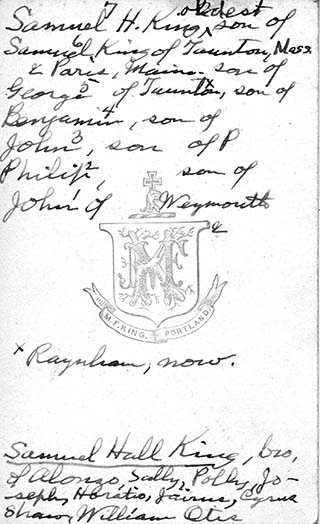 Samuel⁷ H. King, oldest son of
Samuel⁶ King of Taunton, Mass.
& Paris, Maine. son of
George⁵ of Taunton,ˣ son of
Benjamin⁴, son of
John³, son of P
Philip², son of
John¹ of Weymouth
&
M. F. KING, PORTLAND
x Raynham, now.
Samuel Hall King, bro,
of Alonzo, Sally, Polly, Jo-
seph, Horatio, Jairus, Cyrus
Shaw, William Otis